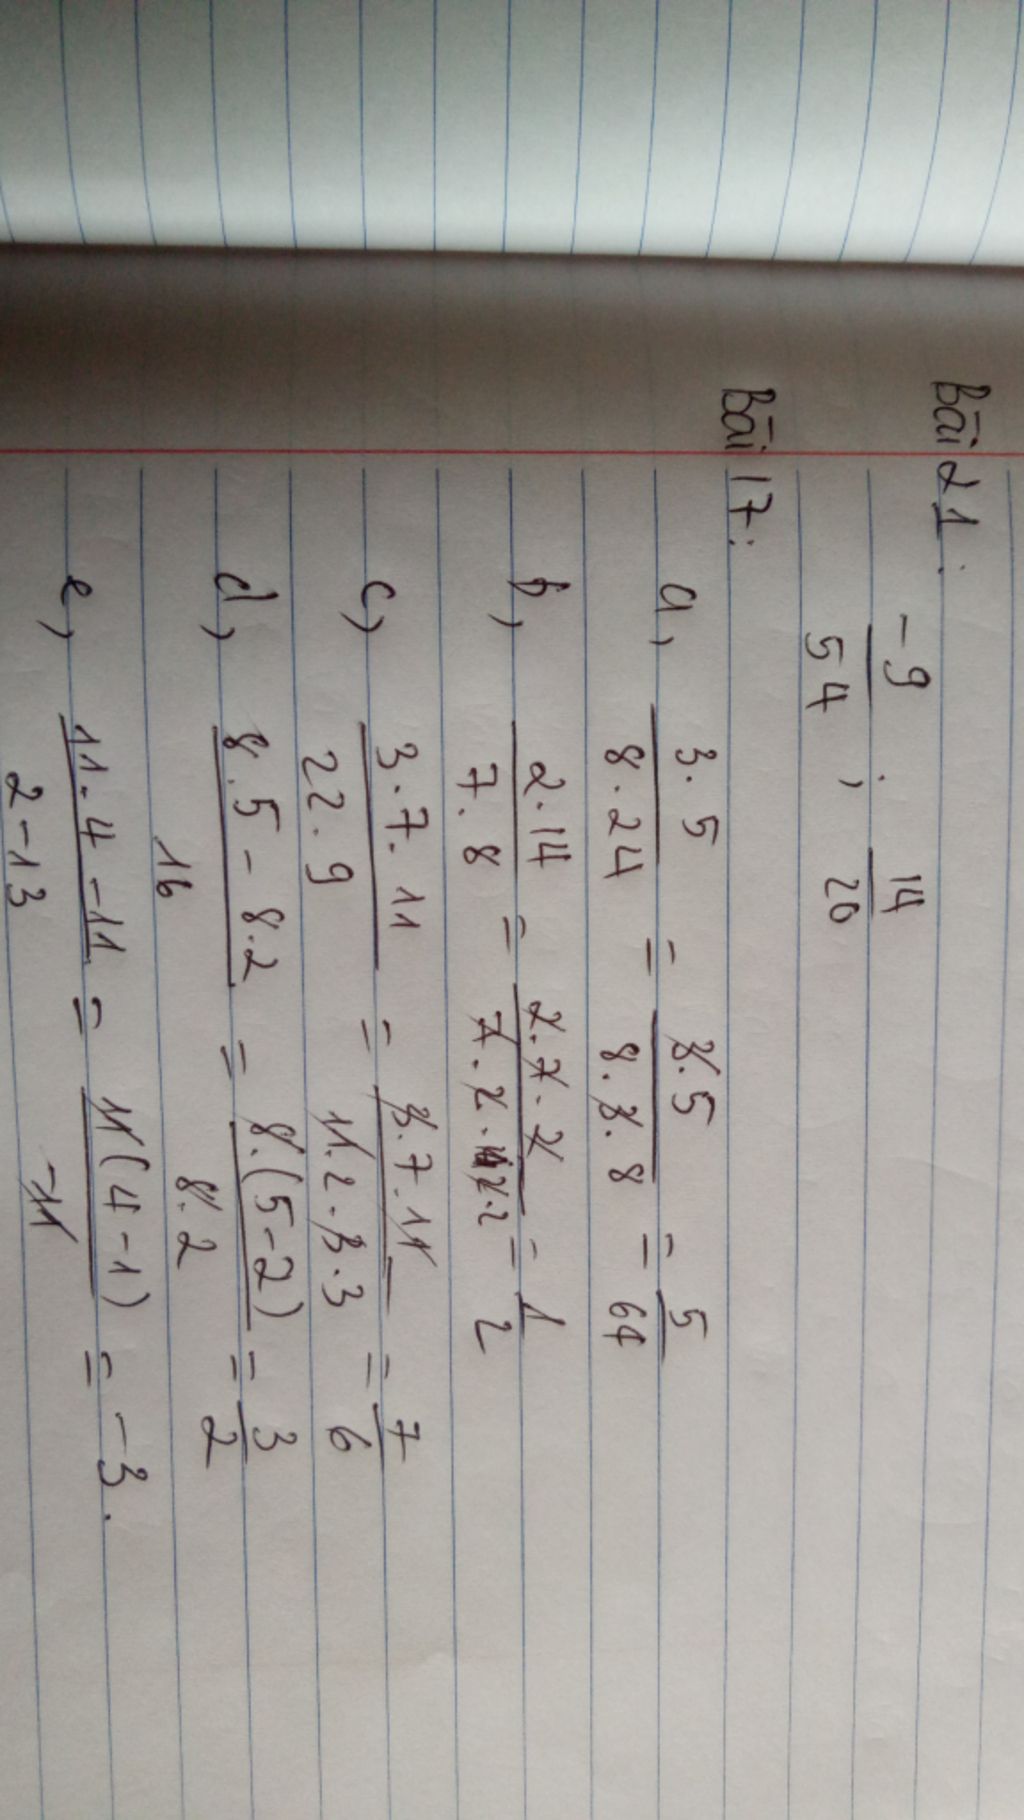 Bài 21:
-9/54 ; 14/20
Bài 17:
a, 3.5/8.24 = 3.5/8.3.8 = 5/64
b, 2.14/7.8 = 2.7.2/7.2.2.2 = 1/2
c, 3.7.11/22.9 = 3.7.11/11.2.3.3 = 7/6
d, 8.5-8.2/16 = 8.(5-2)/8.2 = 3/2
e, 11.4-11/2-13 = 11(4-1)/-11 = -3.